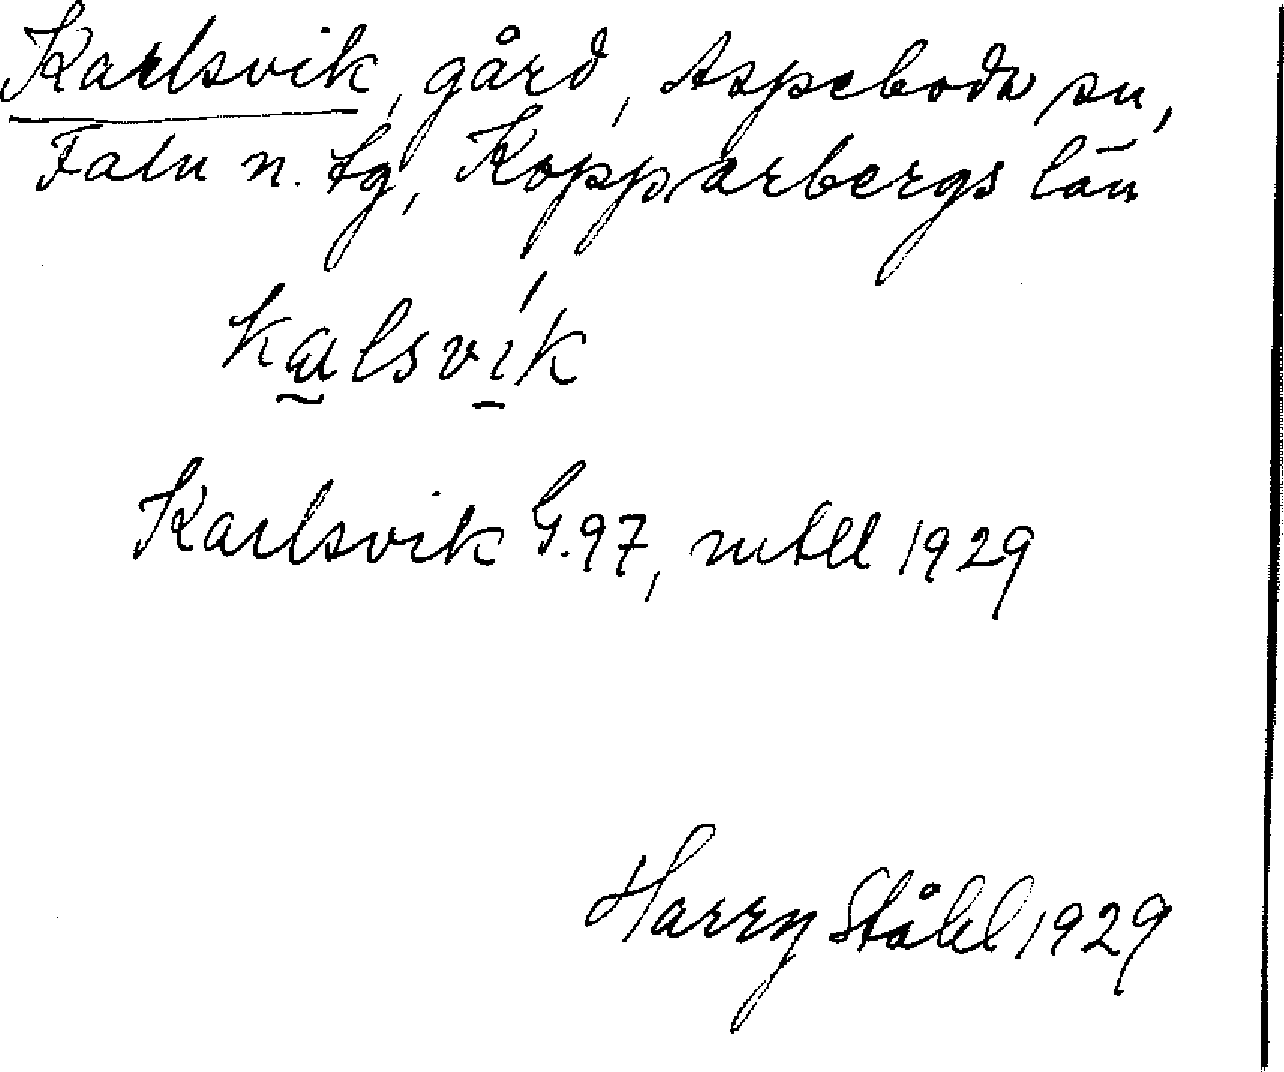 Karlsvik, gård, Aspeboda sn,
Falu n. tg, Kopparbergs län
kalsvík
Karlsvik G.97, mtll 1929
Harry Ståhl 1929